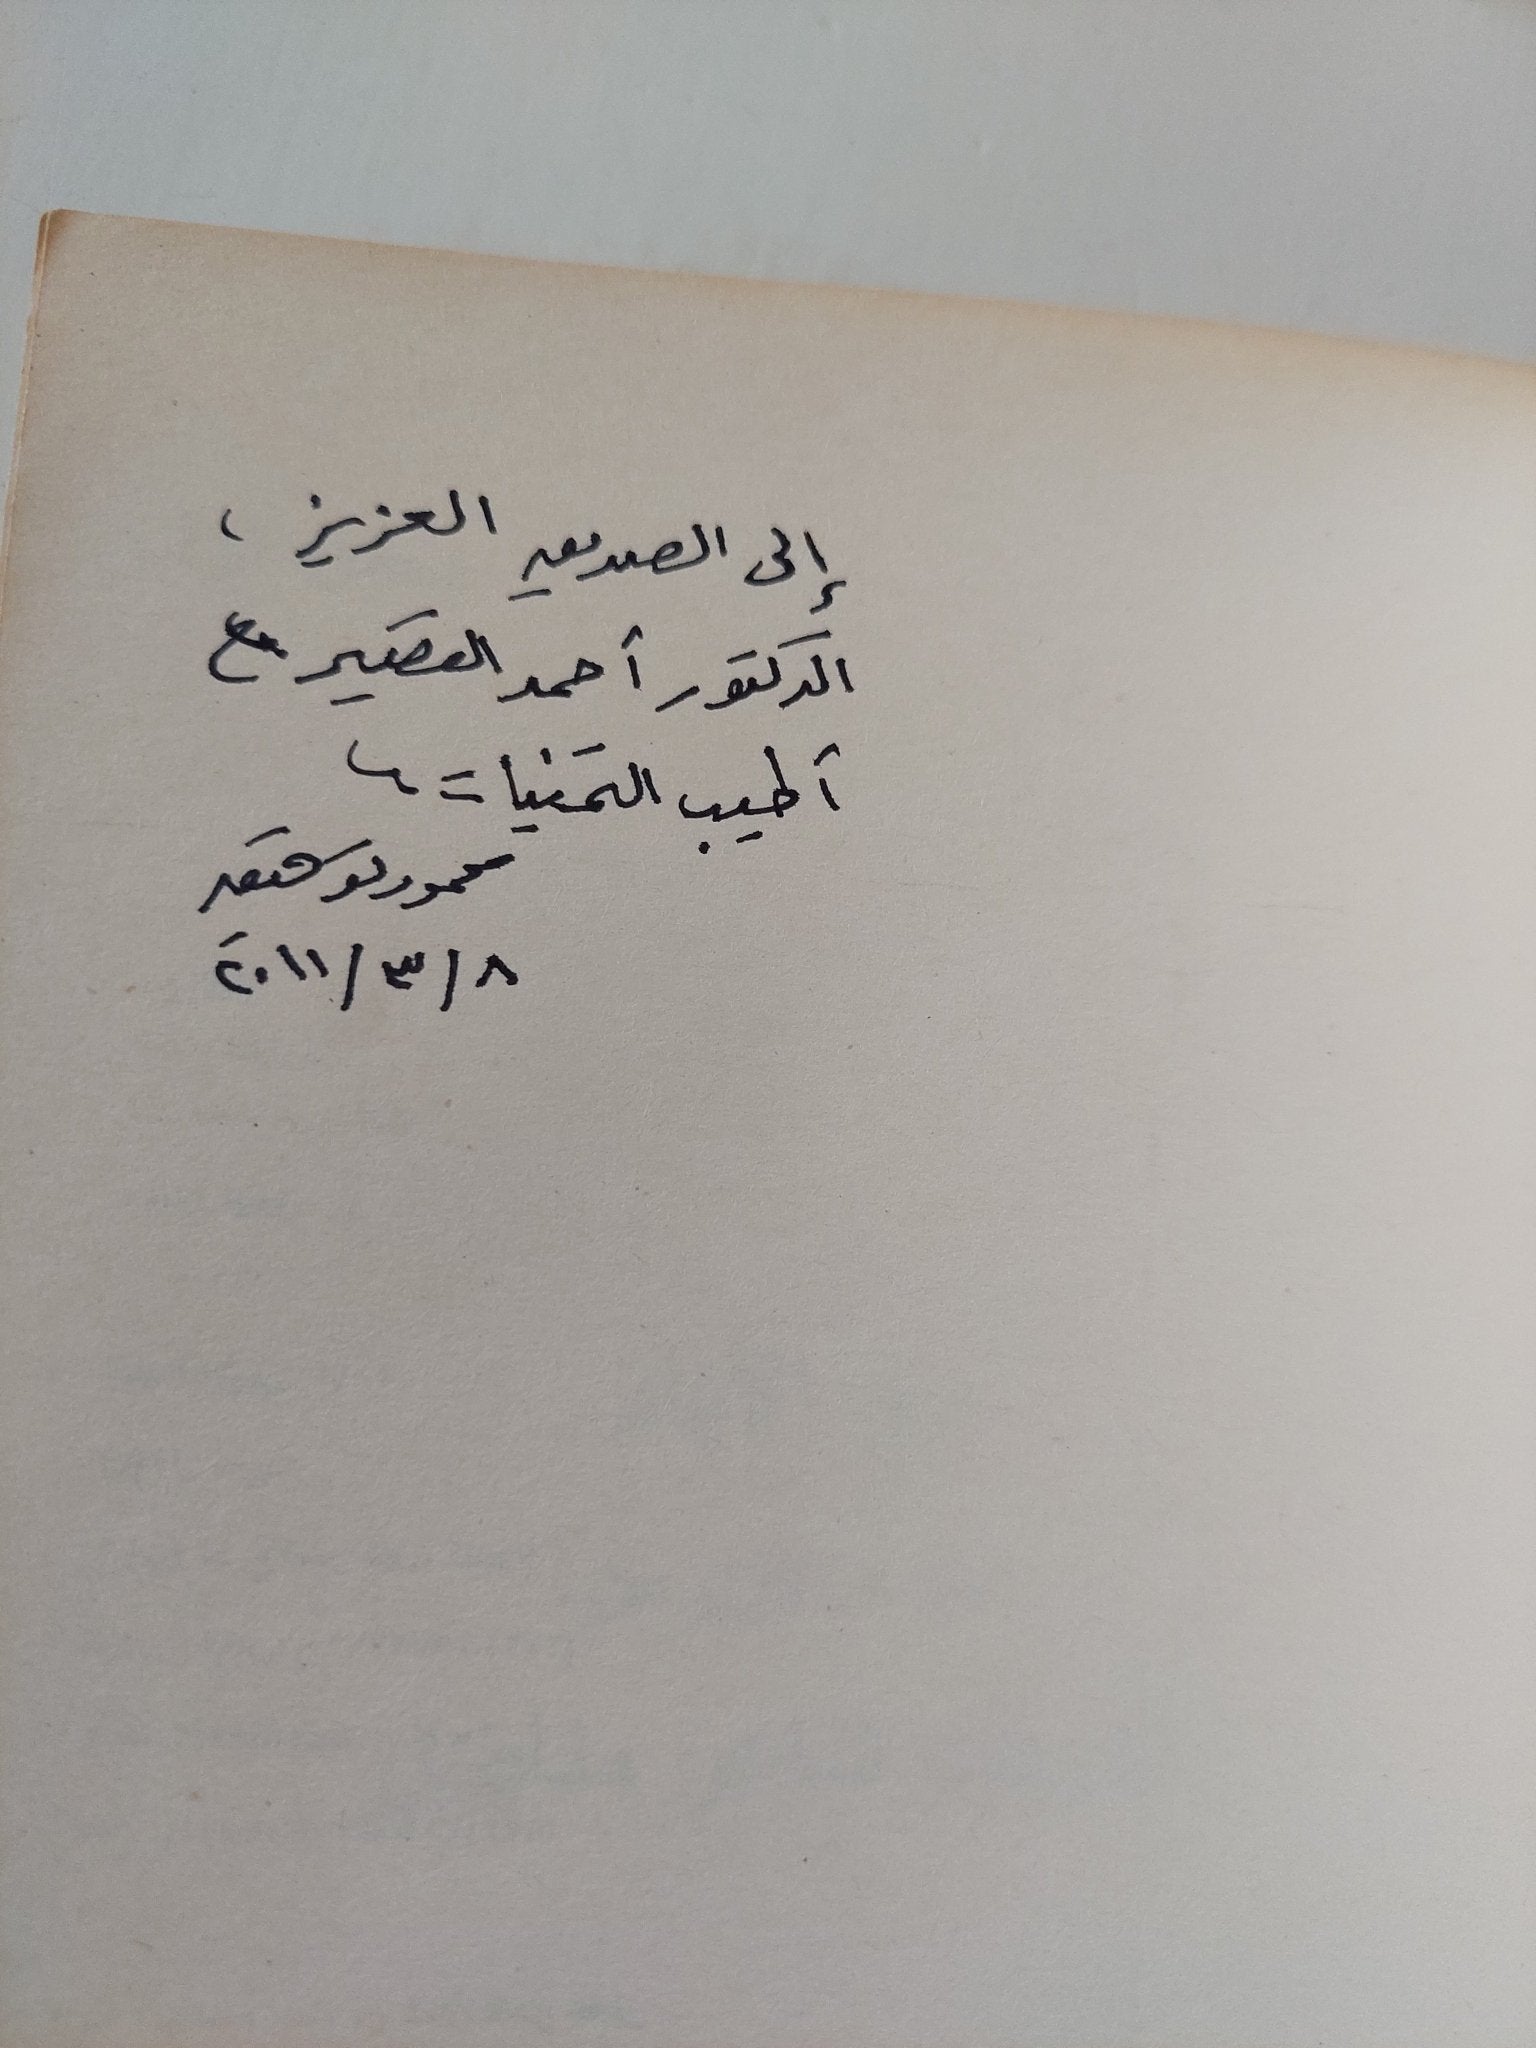 إلى الصديق العزيز ،
الدكتور أحمد القصير مع
أطيب التمنيات
محمود توفيق
٨/٣/٢٠١١